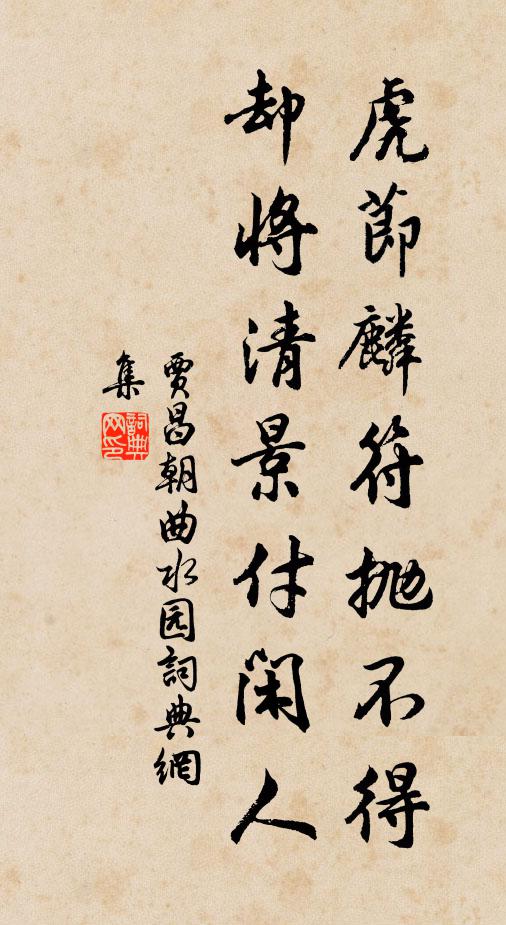 虎節麟符抛不得
却將清景付閑人
賈昌朝曲水园詞典網
集
詞典
网印